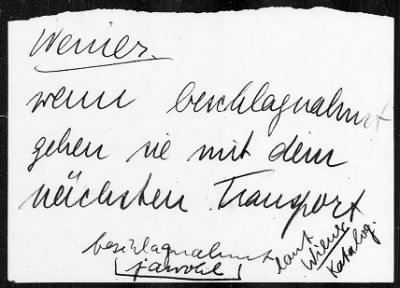 Werner.
wenn beschlagnahmt
gehen sie mit dem
nächsten Transport
beschlagnahmt
jawohl
laut
Wiener
Katalog.